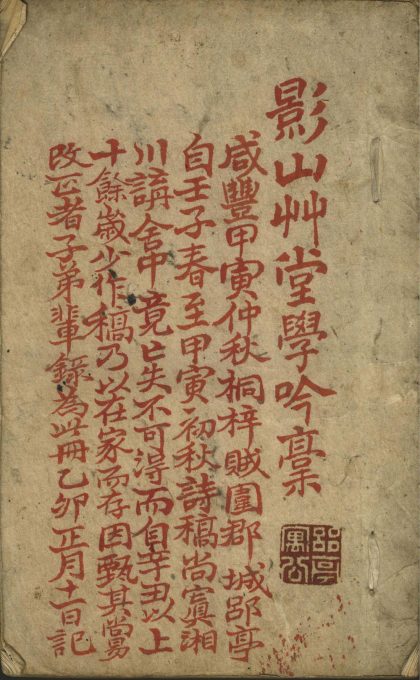 影山艸堂學吟稾
咸豐甲寅仲秋桐梓賊圍郡城郘亭
自壬子春至甲寅初秋詩稿尚寘湘
川講舍中竟亡失不可得而自辛丑以上
十餘歲少作稿乃以在家而存因甄其嘗易
改正者子弟輩錄為此冊乙卯正月十一日記
郘亭
寓公